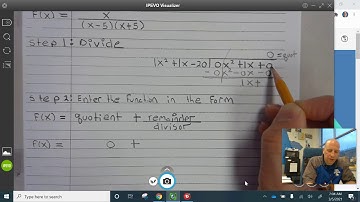 IPEVO Visualizer
F(x) = x
(x-5)(x+5)
Step 1: Divide
0 = quot
1x² + 1x - 20 | 0x² + 1x + 0
- 0x² - 0x - 0
1x +
Step 2: Enter the Function in the Form
F(x) = quotient + remainder
divisor
F(x) = 0 +